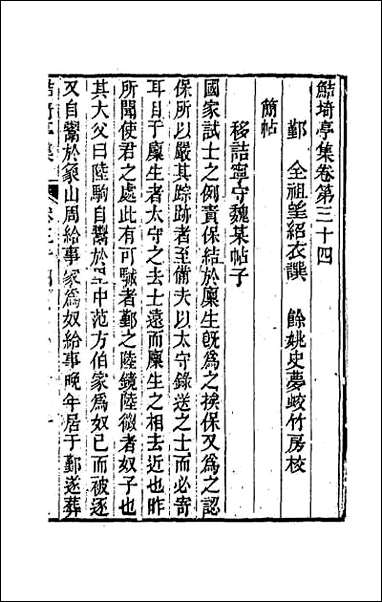 鮚埼亭集卷第三十四
鄞 全祖望紹衣譔 餘姚史夢蛟竹房校
簡帖
移詰寧守魏某帖子
國家試士之例責保結於廩生旣爲之挨保又爲之認
保所以嚴其踪跡者至備夫以太守錄送之士而必寄
耳目于廩生者太守之去士遠而廩生之相去近也昨
所聞使君之處此有可駴者鄞之陸鏡陸微者奴子也
其大父曰陸駒自鬻於中范方伯家爲奴已而被逐
又自鬻於象山周給事家爲奴給事晚年居于鄞遂葬